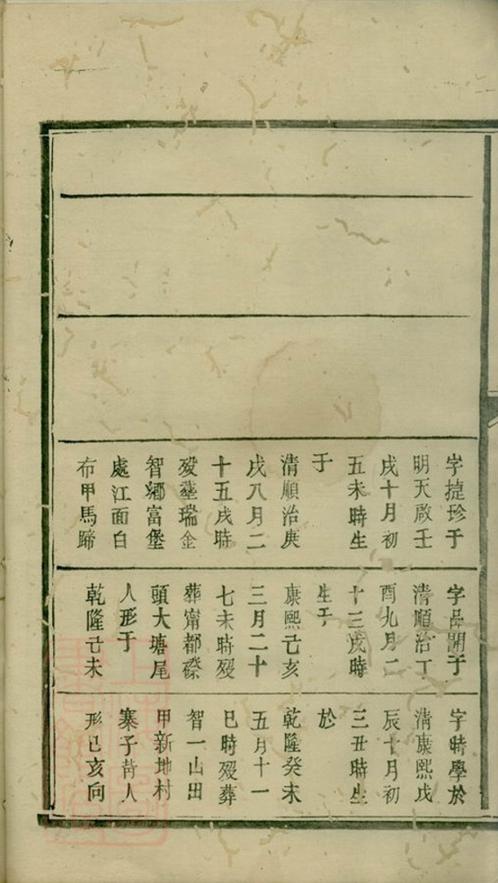 字捷珍于
明天啟壬
戌十月初
五未時生
于
清順治庚
戌八月二
十五戌時
歿塟瑞金
智鄉富堡
處江面白
布甲馬蹄
字品開于
清順治丁
酉九月二
十三戌時
生于
康熙己亥
三月二十
七未時歿
葬甯都磜
頭大塘尾
人形于
乾隆己未
字時學於
清康熙戊
辰十月初
三丑時生
於
乾隆癸未
五月十一
巳時歿葬
智一山田
甲新地村
寨子背人
形巳亥向